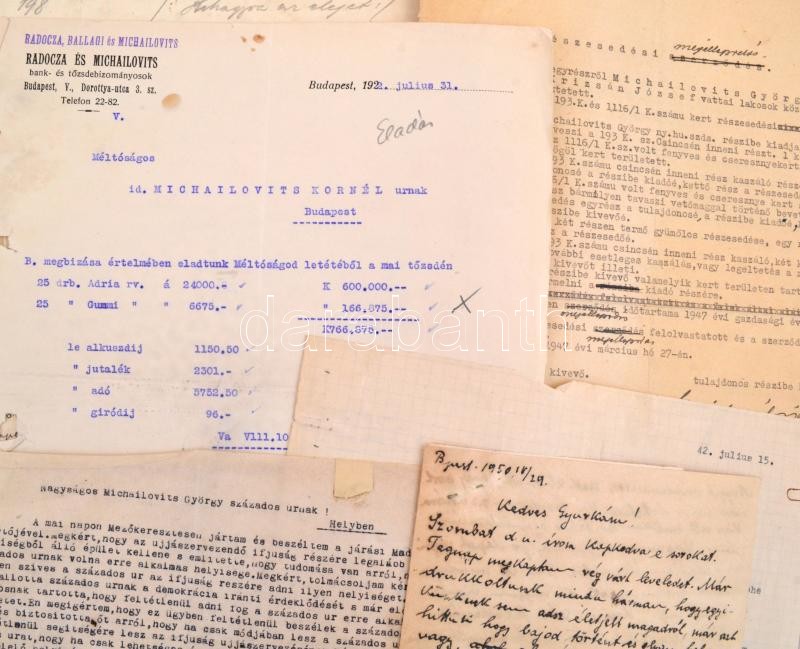 198
RADOCZA, BALLAGI és MICHAILOVITS
RADOCZA ÉS MICHAILOVITS
bank- és tőzsdebizományosok
Budapest, V., Dorottya-utca 3. sz.
Telefon 22-82.
V.
Budapest, 1922. julius 31.
Eladás
Méltóságos
id. MICHAILOVITS KORNÉL urnak
Budapest
B. megbizása értelmében eladtunk Méltóságod letétéből a mai tőzsdén
25 drb. Adria rv. á 24000.- K 600.000.--
25 " Gummi " 6675.- " 166.875.--
K766.875.--
le alkuszdij 1150.50
" jutalék 2301.-
" adó 5752.50
" giródij 96.-
Va Vlll.10
észesedési megállapodás
egyrészről Michailovits György
Krizsán József vattai lakosok köz
tetett.
193.K és 1116/1 K.számu kert részesedési
chailovits György ny.hu.szds. részibe kiadja
veszi a 193 K. sz.Csincsén inneni részt. 1 k
1116/1 K.sz.volt fenyves és cseresznyekert
kert területett.
K számu csincsén inneni rész kaszáló rész
onosé a részibe kiadóé,kettő rész a részesedé
6/1 K.számu volt fenyves és cseresznye kert
bármelyen tavaszi vetőmaggal történő bevet
edés egyrész a tulajdonosé, a részibe kiadóé,
részibe kivevőé.
két részen termő gyümölcs részesedése, egy
a részesedőé.
93 K.számu csincsén inneni rész kaszáló,két
további esetleges kaszálás,vagy legeltetés a
kivevőt illeti.
részibe kivevő valamelyik kert területen tart
a kiadó részére.
szerződés időtartama 1947 évi gazdasági év
megállapodás
esedési szerződés felolvastatott és a szerződ
megállapodás
1947 évi március hó 27-én.
kivevő. tulajdonos részibe
42. julius 15.
Nagyságos Michailovits György százados urnak !
Helyben
A mai napon Mezőkeresztesen jártam és beszéltem a járási Mad
tőjével.Megkért,hogy az ujjászervezendő ifjuság részére legalább
iségből álló épület kellene s emlitette,hogy tudomása van arról,
ados urnak volna erre alkalmas helyisége.Megkért,tolmácsoljam kér
en szives a százados ur az ifjuság részére adni ilyen helyiséget.
allotta százados urnak a demokrácia iránti érdeklődését a már el
osnak tartotta,hogy feltétlenül adni fog a százados ur erre alka
etet.Én megigértem,hogy ez ügyben feltétlenül beszélek a százado
s biztositottam őt arról,hogy ha csak módjában lesz a százados u
tlenül segitségére lesz az ifjuság ujjászervezésében
urat,hogy ha csak lehetséges
Bpest. 1950 IV/29.
Kedves Gyurkám!
Szombat d.u. irom kapkodva e sorokat.
Tegnap megkaptam vég várt leveledet. Már
drukkoltunk mind a hárman, hogy egyi-
künknek sem adsz életjelt magadról, már azt
hittük hogy bajod történt és
vagy